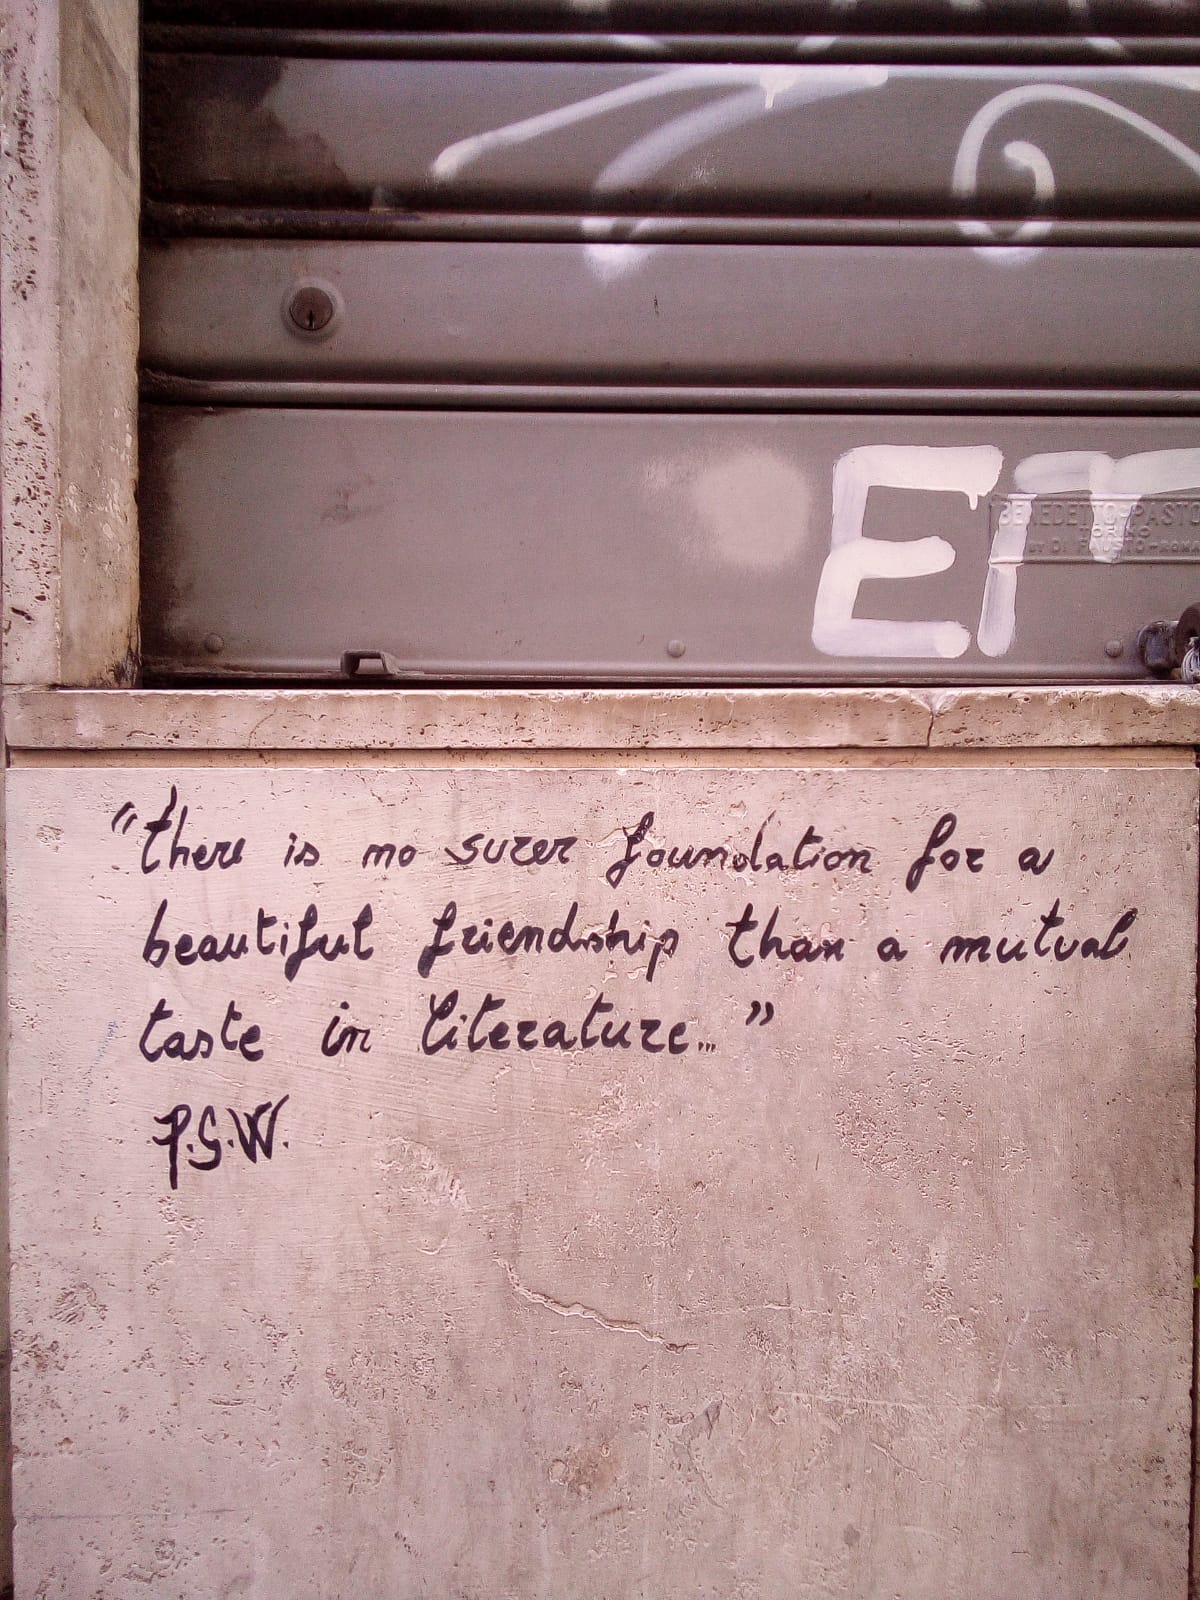 EIT
BENEDETTO PASTO
TORINO
DI FAUSTO-ROMA
“there is no surer foundation for a
beautiful friendship than a mutual
taste in literature...”
P.G.W.